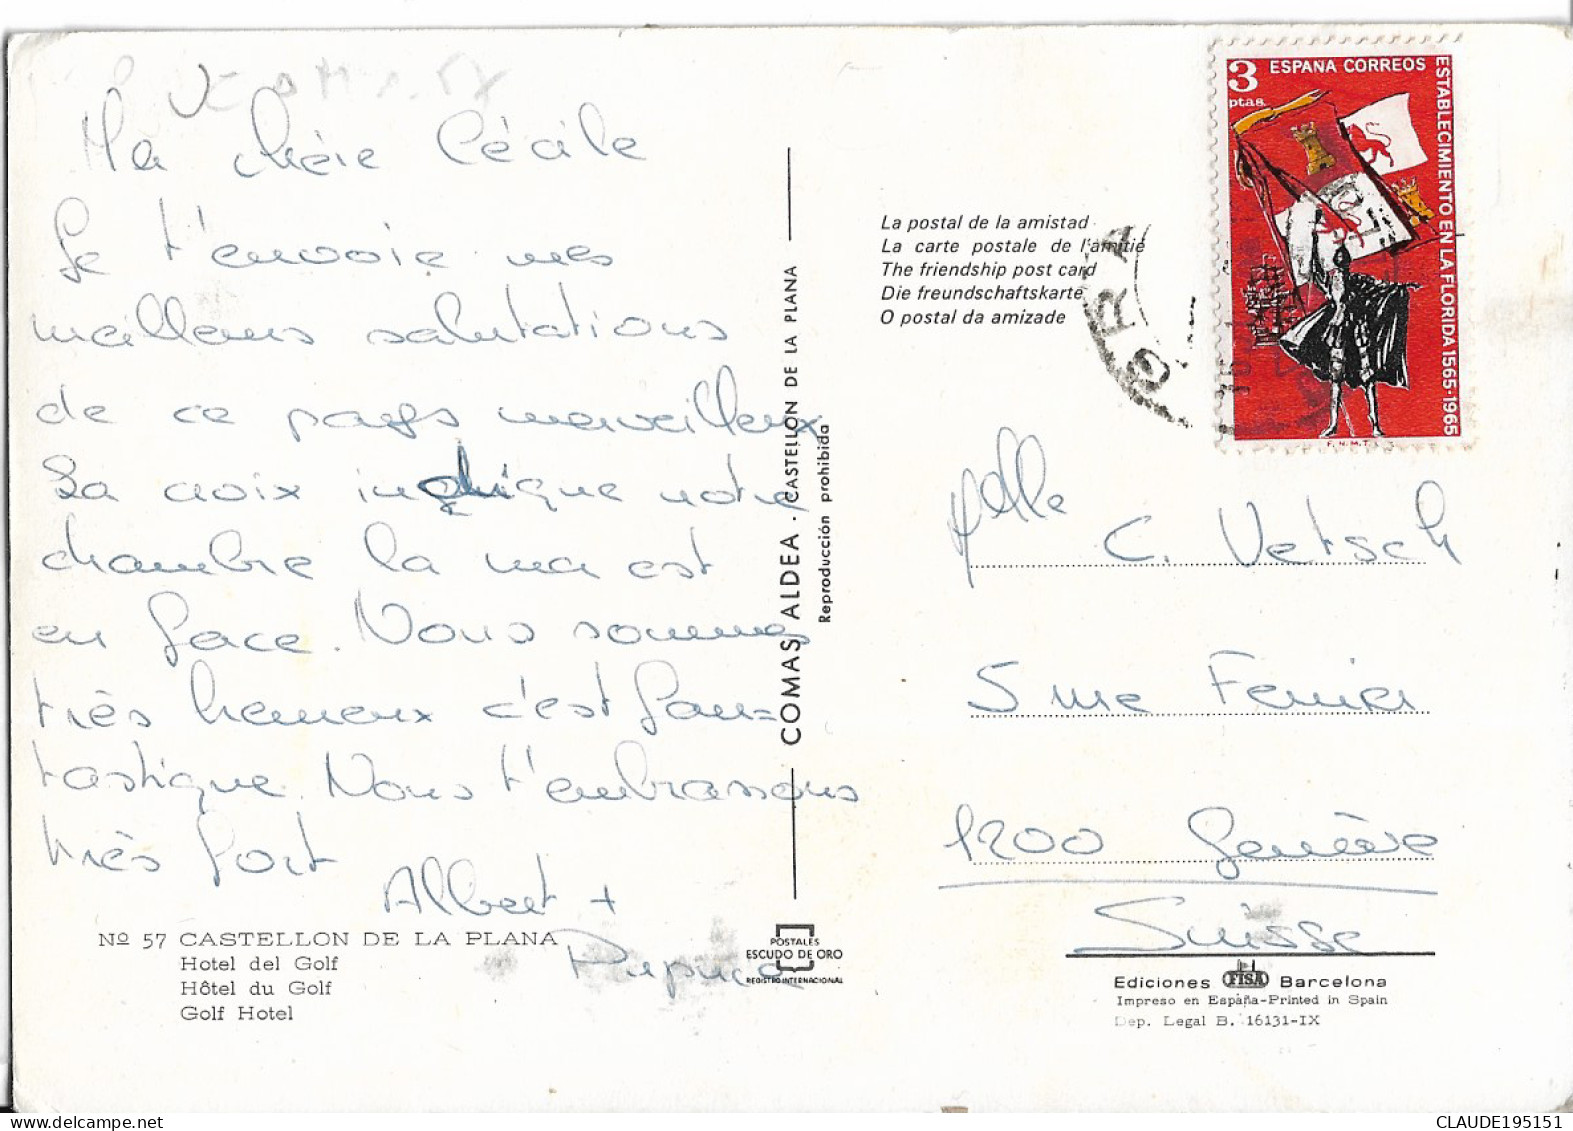 Ma chère Cécile
Je t'envoie mes
meilleurs salutations
de ce pays merveilleux
La croix indique notre
chambre la mer est
en face. Nous sommes
très heureux c'est fan=
tastique. Nous t'embrassons
très fort
Albert +
Nº 57 CASTELLON DE LA PLANA
Hotel del Golf
Hôtel du Golf
Golf Hotel
COMAS ALDEA · CASTELLON DE LA PLANA
Reproducción prohibida
POSTALES
ESCUDO DE ORO
REGISTRO INTERNACIONAL
La postal de la amistad
La carte postale de l'amitié
The friendship post card
Die freundschaftskarte
O postal da amizade
3 ESPAÑA CORREOS
ptas.
ESTABLECIMIENTO EN LA FLORIDA 1565-1965
F.N.M.T.
Melle
C. Vetsch
5 rue Ferrier
1200 Genève
Suisse
Ediciones FISA Barcelona
Impreso en España-Printed in Spain
Dep. Legal B. 16131-IX
CLAUDE195151